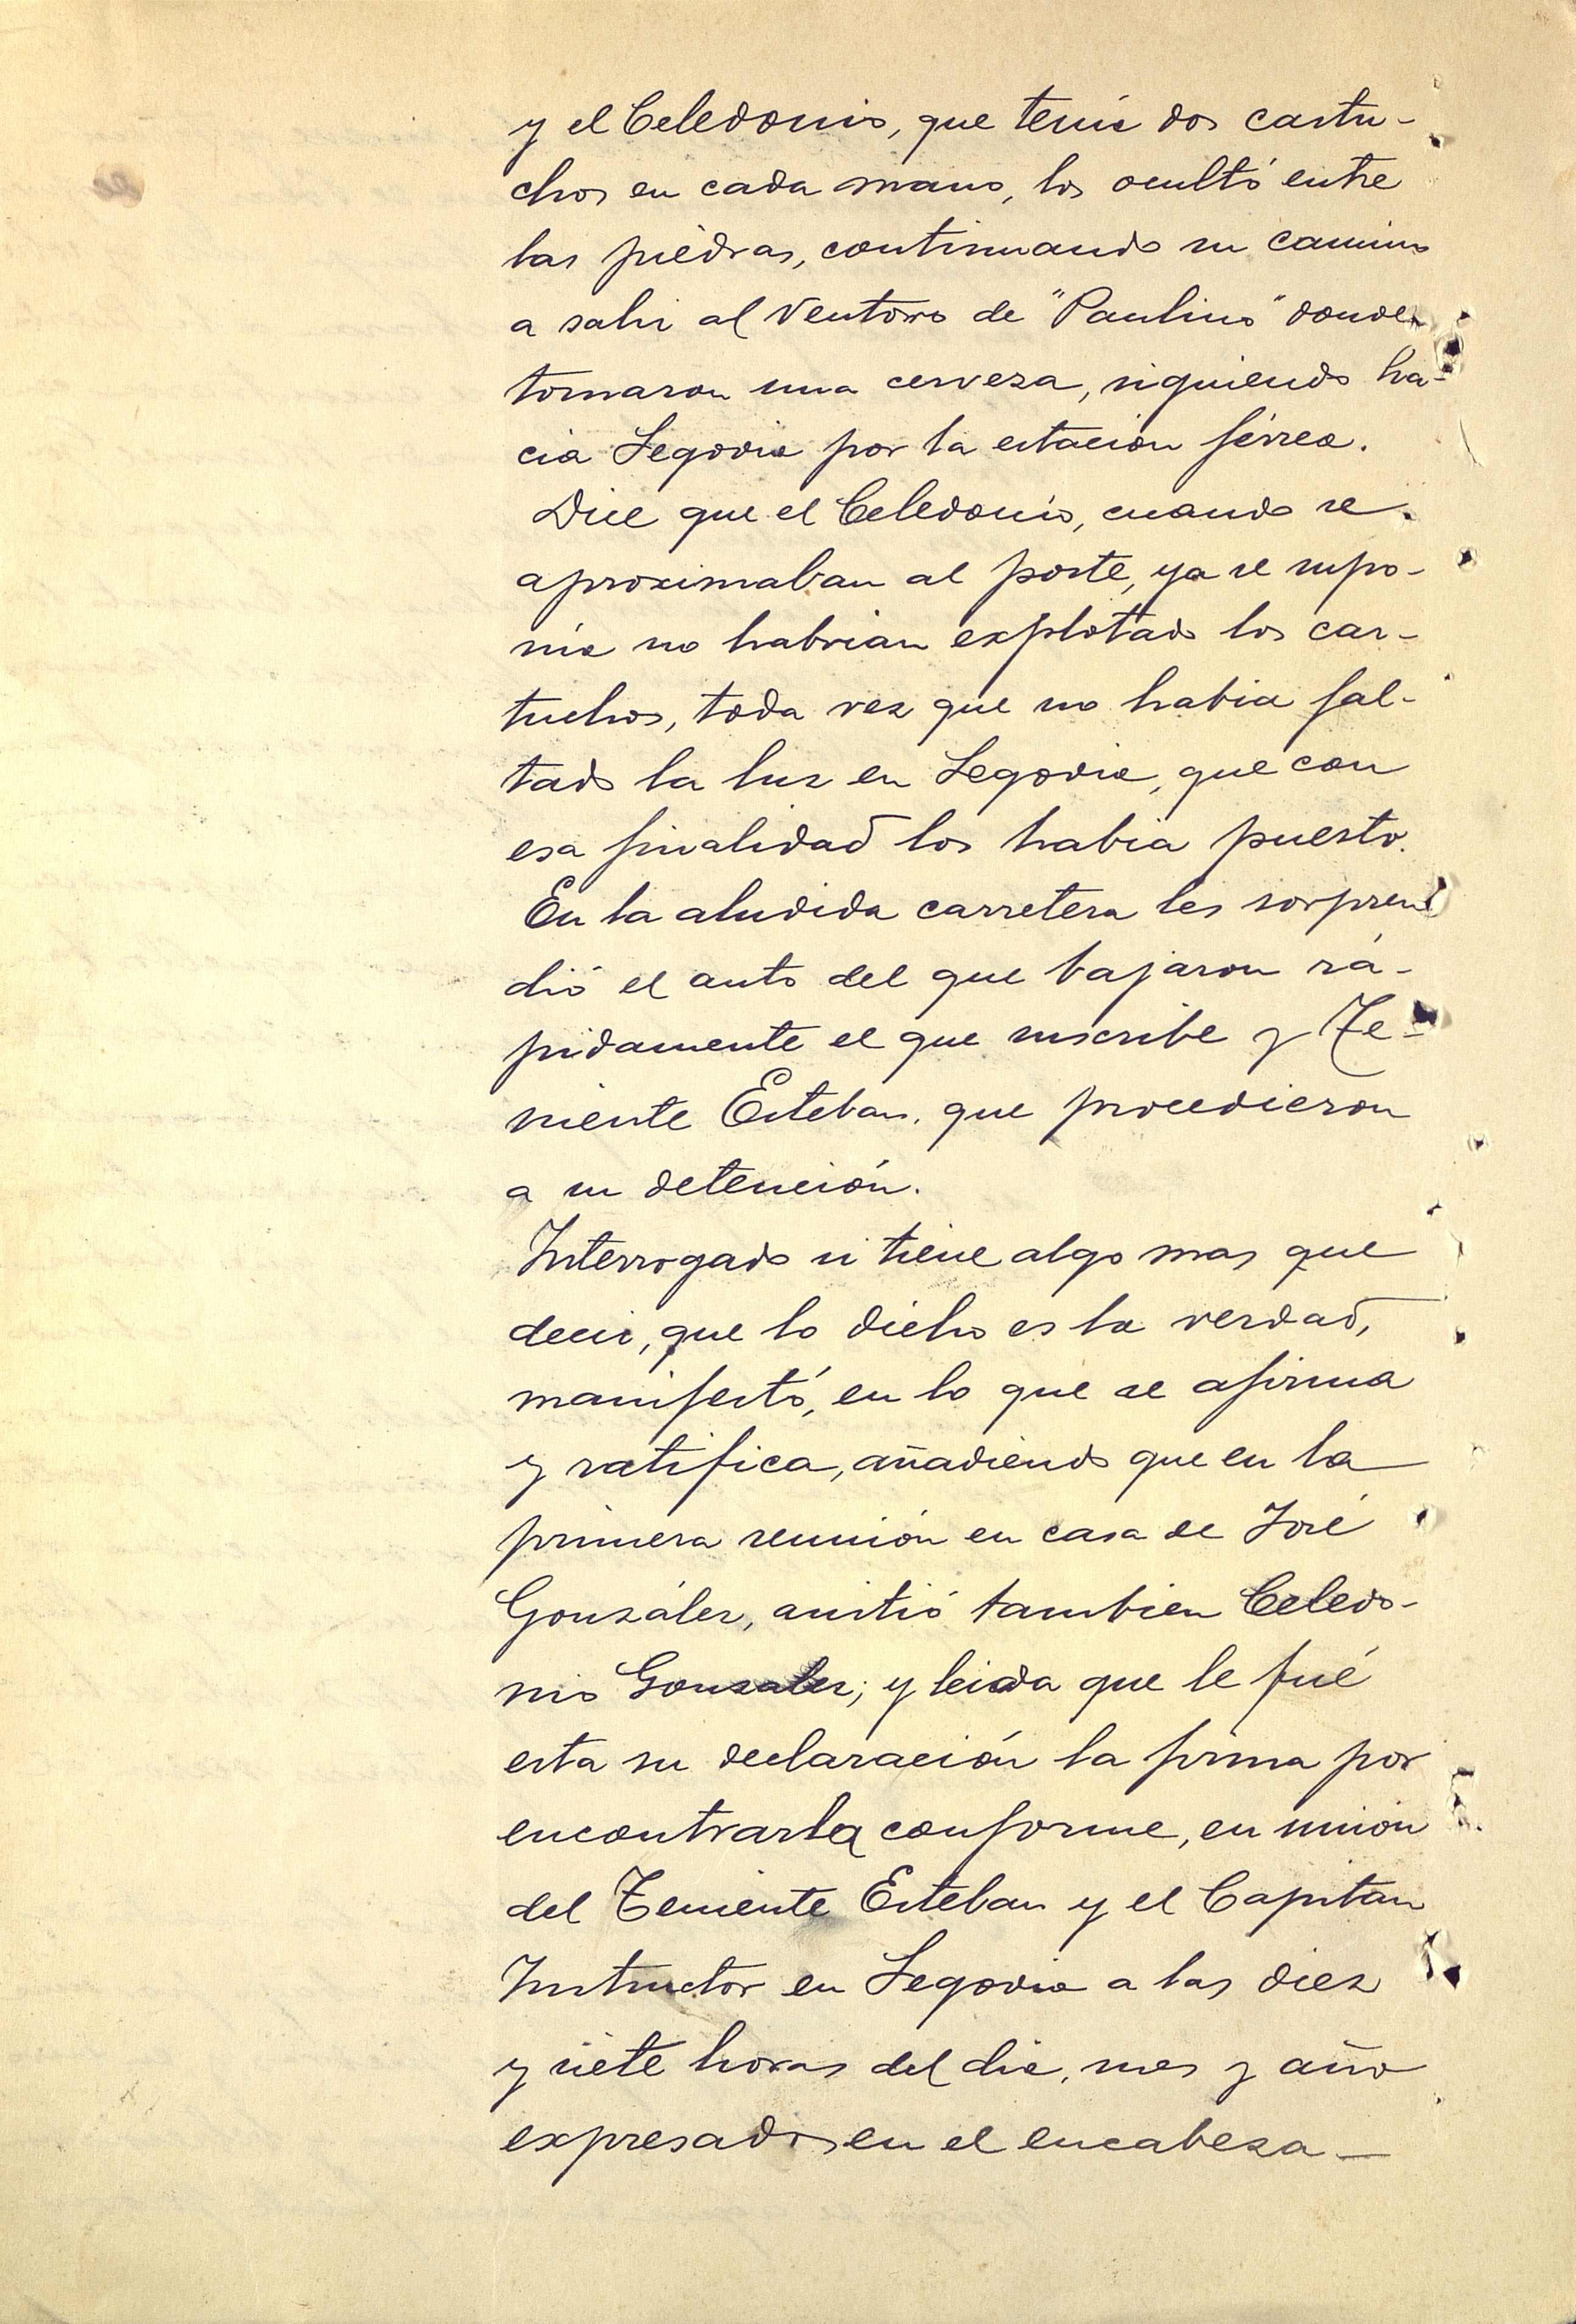 y el Celedonio, que tenía dos cartu-
chos en cada mano, los ocultó entre
las piedras, continuando su camino
a salir al Ventorro de "Paulino" donde
tomaron una cerveza, siguiendo ha-
cia Segovia por la estacion férrea.
Dice que el Celedonio, cuando se
aproximaban al poste, ya se supo-
nía no habrian explotado los car-
tuchos, toda vez que no habia fal-
tado la luz en Segovia, que con
esa finalidad los habia puesto.
En la aludida carretera les sorpren
dió el auto del que bajaron rá-
pidamente el que suscribe y Te-
niente Esteban, que procedieron
a su detención.
Interrogado si tiene algo mas que
decir, que lo dicho es la verdad,
manifestó, en lo que se afirma
y ratifica, añadiendo que en la
primera reunión en casa de José
González, asistió tambien Celedo-
nio Gonzalez; y leida que le fué
esta su declaración la firma por
encontrarla conforme, en union
del Teniente Esteban y el Capitan
Instructor en Segovia a las diez
y siete horas del dia, mes y año
expresados en el encabeza-